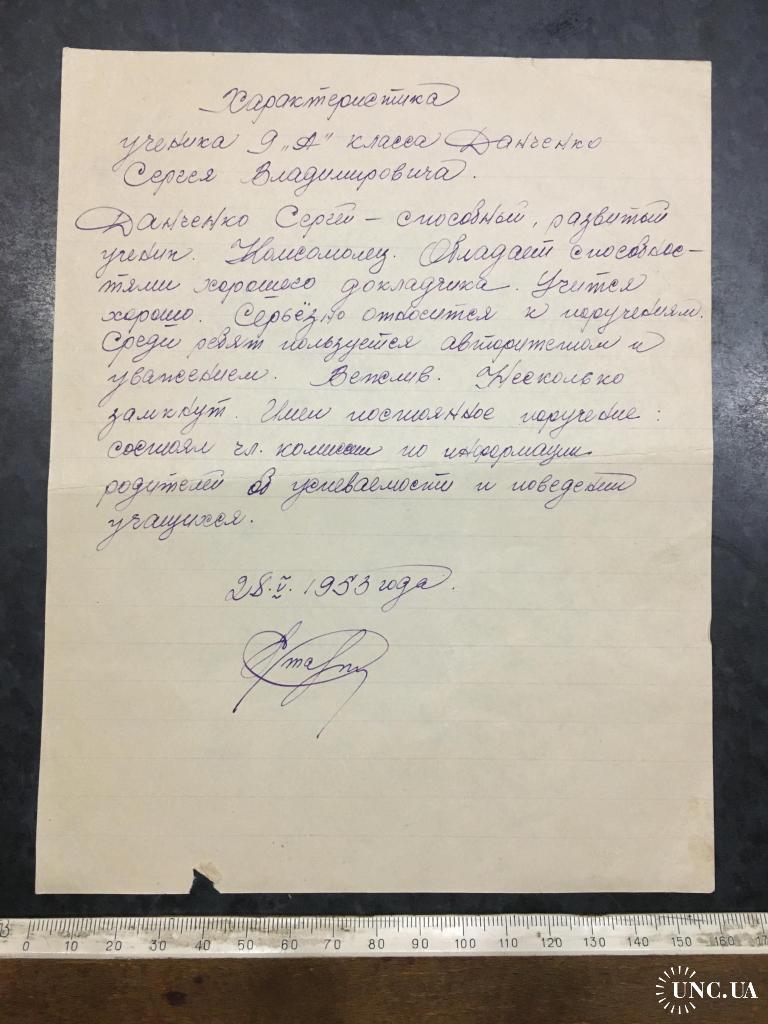 Характеристика
ученика 9 „А" класса Данченко
Сергея Владимировича.
Данченко Сергей – способный, развитый
ученик. Комсомолец. Обладает способнос-
тями хорошего докладчика. Учится
хорошо. Серьёзно относится к поручениям.
Среди ребят пользуется авторитетом и
уважением. Вежлив. Несколько
замкнут. Имел постоянное поручение:
состоял чл. комиссии по информации
родителей об успеваемости и поведении
учащихся.
28.V. 1953 года.
0 10 20 30 40 50 60 70 80 90 100 110 120 130 140 150 160 17
UNC.UA